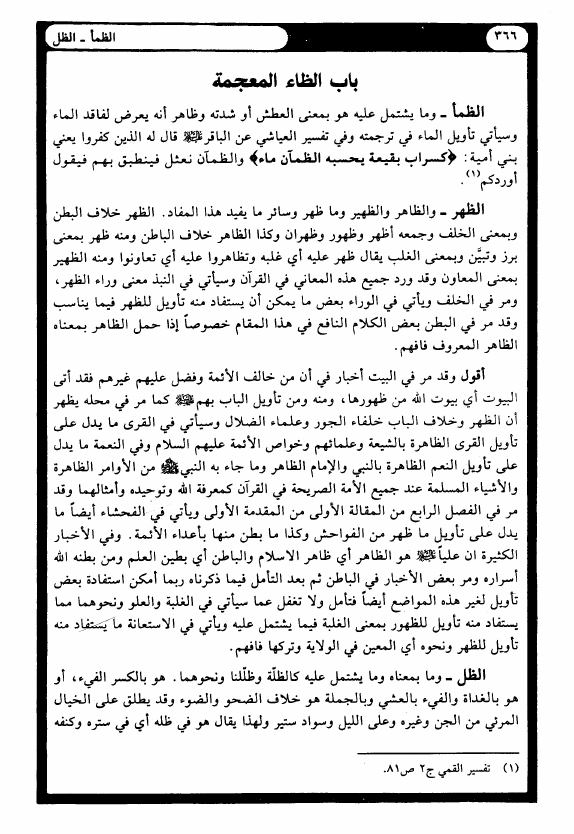 ٣٦٦
الظمأ ـ الظل
باب الظاء المعجمة
الظمأ ـ وما يشتمل عليه هو بمعنى العطش أو شدته وظاهر أنه يعرض لفاقد الماء
وسيأتي تأويل الماء في ترجمته وفي تفسير العياشي عن الباقر ﷺ قال له الذين كفروا يعني
بني أمية: ﴿كسراب بقيعة يحسبه الظمآن ماء﴾ والظمآن نعثل فينطبق بهم فيقول
أوردكم(١).
الظهر ـ والظاهر والظهير وما ظهر وسائر ما يفيد هذا المفاد. الظهر خلاف البطن
وبمعنى الخلف وجمعه أظهر وظهور وظهران وكذا الظاهر خلاف الباطن ومنه ظهر بمعنى
برز وتبيَّن وبمعنى الغلب يقال ظهر عليه أي غلبه وتظاهروا عليه أي تعاونوا ومنه الظهير
بمعنى المعاون وقد ورد جميع هذه المعاني في القرآن وسيأتي في النبذ معنى وراء الظهر،
ومر في الخلف ويأتي في الوراء بعض ما يمكن أن يستفاد منه تأويل للظهر فيما يناسب
وقد مر في البطن بعض الكلام النافع في هذا المقام خصوصاً إذا حمل الظاهر بمعناه
الظاهر المعروف فافهم.
أقول وقد مر في البيت أخبار في أن من خالف الأئمة وفضل عليهم غيرهم فقد أتى
البيوت أي بيوت الله من ظهورها، ومنه ومن تأويل الباب بهم ﷺ كما مر في محله يظهر
أن الظهر وخلاف الباب خلفاء الجور وعلماء الضلال وسيأتي في القرى ما يدل على
تأويل القرى الظاهرة بالشيعة وعلمائهم وخواص الأئمة عليهم السلام وفي النعمة ما يدل
على تأويل النعم الظاهرة بالنبي والإمام الظاهر وما جاء به النبي ﷺ من الأوامر الظاهرة
والأشياء المسلمة عند جميع الأمة الصريحة في القرآن كمعرفة الله وتوحيده وأمثالهما وقد
مر في الفصل الرابع من المقالة الأولى من المقدمة الأولى ويأتي في الفحشاء أيضاً ما
يدل على تأويل ما ظهر من الفواحش وكذا ما بطن منها بأعداء الأئمة. وفي الأخبار
الكثيرة ان علياً ﷺ هو الظاهر أي ظاهر الاسلام والباطن أي بطين العلم ومن بطنه الله
أسراره ومر بعض الأخبار في الباطن ثم بعد التأمل فيما ذكرناه ربما أمكن استفادة بعض
تأويل لغير هذه المواضع أيضاً فتأمل ولا تغفل عما سيأتي في الغلبة والعلو ونحوهما مما
يستفاد منه تأويل للظهور بمعنى الغلبة فيما يشتمل عليه ويأتي في الاستعانة ما يستفاد منه
تأويل للظهر ونحوه أي المعين في الولاية وتركها فافهم.
الظل ـ وما بمعناه وما يشتمل عليه كالظلّة وظلّلنا ونحوهما. هو بالكسر الفيء، أو
هو بالغداة والفيء بالعشي وبالجملة هو خلاف الضحو والضوء وقد يطلق على الخيال
المرئي من الجن وغيره وعلى الليل وسواد ستير ولهذا يقال هو في ظله أي في ستره وكنفه
(١) تفسير القمي ج٢ ص٨١.